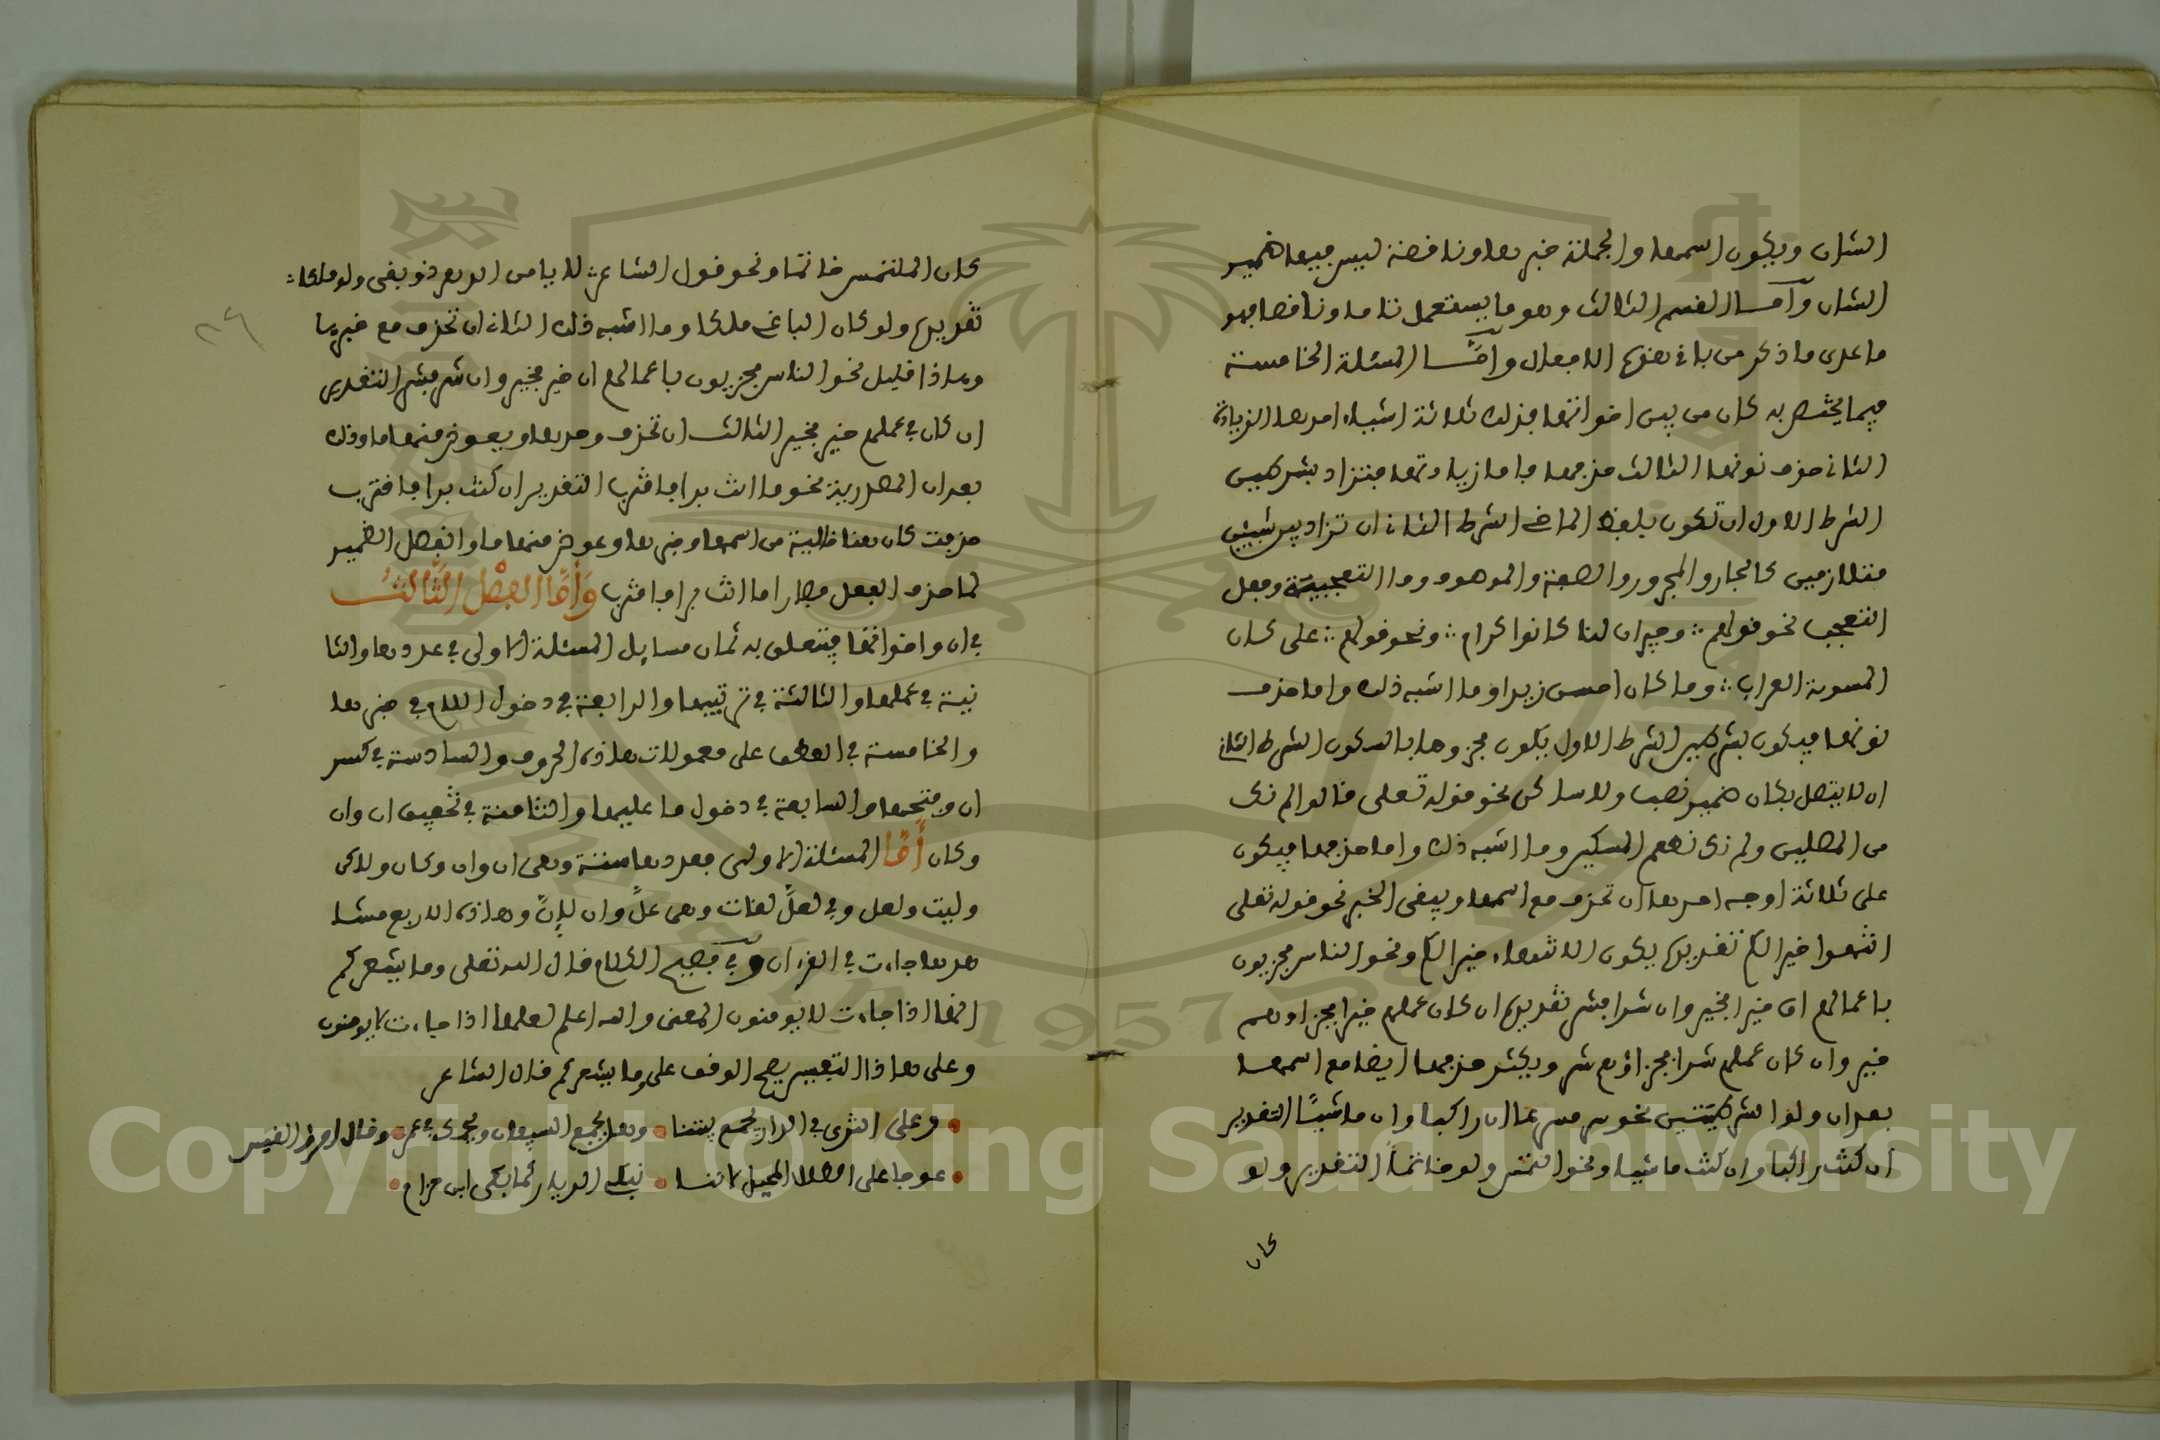 الشان ويكون اسمها والجملة خبرها وناقصة ليس فيها ضمير
الشان وأما القسم الثالث وهو ما يستعمل تاما وناقصا فهو
ما عدى ما ذكر من باقي هذه الافعال وأما المسئلة الخامسة
فيما يختص به كان من بين اخواتها فذلك ثلاثة اشياء احدها الزيادة
الثاني حذف نونها الثالث حذفها فاما زيادتها فتزاد بشرطين
الشرط الاول ان تكون بلفظ الماضي الشرط الثاني ان تزاد بين شيئين
متلازمين كالجار والمجرور والصفة والموصوف وما التعجبية وفعل
التعجب نحو قولهم ∴ وجيران لنا كانوا كرام ∴ ونحو قولهم ∴ على كان
المسومة العراب ∴ وما كان احسن زيدا وما اشبه ذلك واما حذف
نونها فيكون بشرطين الشرط الاول يكون مجزوما بالسكون الشرط الثاني
ان لا يتصل بكان ضمير نصب ولا ساكن نحو قوله تعلى قالوا لم نك
من المصلين ولم نك نطعم المسكين وما اشبه ذلك واما حذفها فيكون
على ثلاثة اوجه احدها ان تحذف مع اسمها ويبقى الخبر نحو قوله تعلى
انتهوا خيرا لكم تقديره يكون الانتهاء خيرا لكم ونحو الناس مجزيون
باعمالهم ان خيرا فخير وان شرا فشر تقديره ان كان عملهم خيرا فجزاوهم
خير وان كان عملهم شرا فجزاؤهم شر ويكثر حذفها ايضا مع اسمها
بعد ان ولو الشرطيتين نحو سر مسرعا ان راكبا وان ماشيًا التقدير
ان كنت راكبا وان كنت ماشيا ونحو التمس ولو خاتمًا التقدير ولو
كان
كان الملتمس خاتما ونحو قول الشاعر ∴ لا يامن الدهر ذو بغي ولو ملكا ∴
تقديره ولو كان الباغي ملكا وما اشبه ذلك الثاني ان تحذف مع خبرها
وهاذا قليل نحو الناس مجزيون باعمالهم ان خير فخير وان شر فشر التقدير
ان كان في عملهم خير فخير الثالث ان تحذف وحدها ويعوض منها ما وذلك
بعد ان المصدرية نحو اما انت برا فاقترب التقدير ان كنت برا فاقترب
حذفت كان هنا خالية من اسمها وخبرها وعوض منها ما وانفصل الضمير
لما حذف الفعل فصار اما انت برا فاقترب وَأَمَّا الفصْل الثَّالثُ
في ان واخواتها فيتعلق به ثمان مسايل المسئلة الاولى في عددها والثا
نية في عملها والثالثة في ترتيبها والرابعة في دخول اللام في خبرها
والخامسة في العطف على معمولات هاذه الحروف والسادسة في كسر
ان وفتحها والسابعة في دخول ما عليها والثامنة في تخفيف ان وان
وكان أَمَّا المسئلة الاولى فعددها ستة وهى ان وان وكان ولاكن
وليت ولعل وفي لعلَّ لغات وهى علَّ وان لإنَّ وهاذه الاربع مشا
هدها جاءت في القرءان وفي فصيح الكلام قال الله تعلى وما يشعركم
انها اذا جاءت لا يومنون المعنى والله اعلم لعلها اذا جاءت لا يومنون
وعلى هاذا التفسير يصح الوقف على وما يشعركم قال الشاعر
وعلى الثرى في الدار يجمع بيننا • وهل يجمع السيفان ويحك في غمد • وقال امرؤ القيس
• عوجا على الطلل المحيل لاننا • نبكي الديار كما بكى ابن حزام •